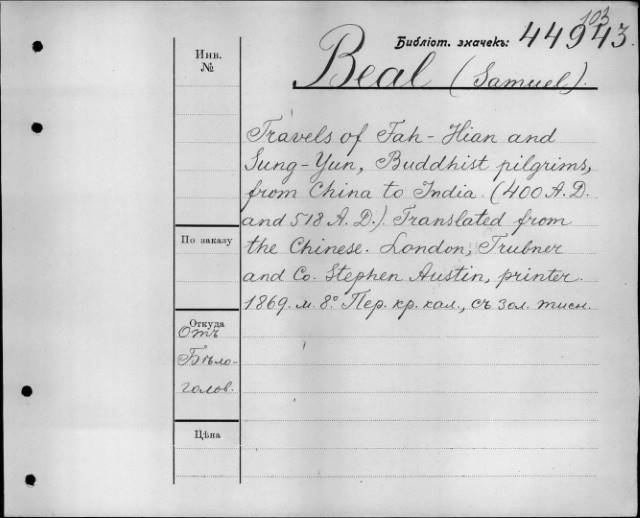 103
Библіот. значекъ: 44943.
Инв.
№
Beal (Samuel).
Travels of Fah-Hian and
Sung-Yun, Buddhist pilgrims,
from China to India (400 A.D.
and 518 A.D.). Translated from
По заказу
the Chinese. London, Trubner
and Co. Stephen Austin, printer.
1869. м. 8°. Пер. кр. кал., съ зол. тисн.
Откуда
Отъ
Бѣло-
голов.
Цѣна